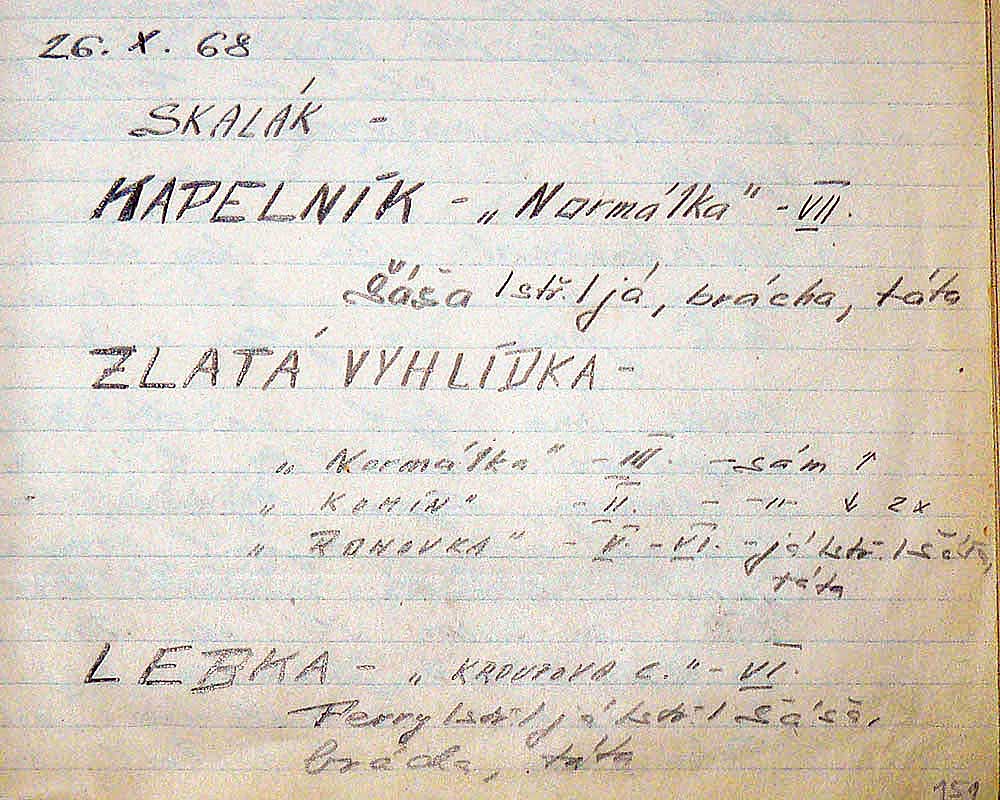 26. X. 68
SKALÁK -
KAPELNÍK - „Normálka" - VII.
Šáša /stř./ já, brácha, táta
ZLATÁ VYHLÍDKA -
„Normálka" - III. - sám ↑
„KOMÍN" - II. - -11- ↓ 2x
„ZONOVKA" - V. - VI. - já /stř./ Šáša,
táta
LEBKA - „KROUPOVA C." - VI.
Ferry /stř./ já /stř./ Šáša,
brácha, táta
151